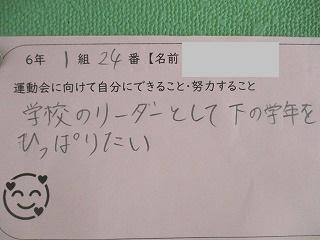 6年 1組 24番【名前
運動会に向けて自分にできること・努力すること
学校のリーダーとして下の学年を
ひっぱりたい